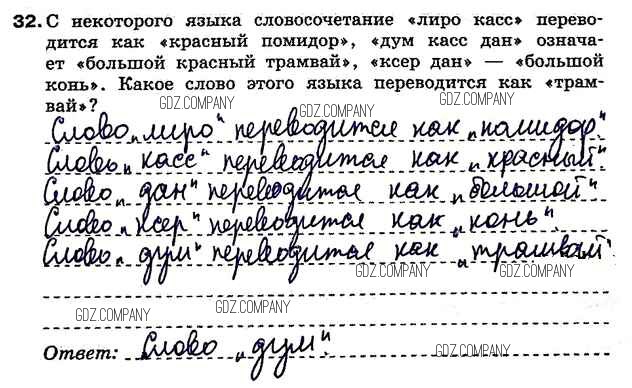 32. С некоторого языка словосочетание «лиро касс» перево-
дится как «красный помидор», «дум касс дан» означа-
ет «большой красный трамвай», «ксер дан» — «большой
конь». Какое слово этого языка переводится как «трам-
вай»?
GDZ.COMPANY GDZ.COMPANY GDZ.COMPANY
Слово „лиро" переводится как „помидор".
Слово „касс" переводится как „красный".
GDZ.COMPANY GDZ.COMPANY
Слово „дан" переводится как „большой"
GDZ.COMPANY GDZ.COMPANY
Слово „ксер" переводится как „конь".
GDZ.COMPANY
Слово „дум" переводится как „трамвай"
GDZ.COMPANY GDZ.COMPANY
GDZ.COMPANY GDZ.COMPANY
Ответ: Слово „дум".
GDZ.COMPANY GDZ.COMPANY